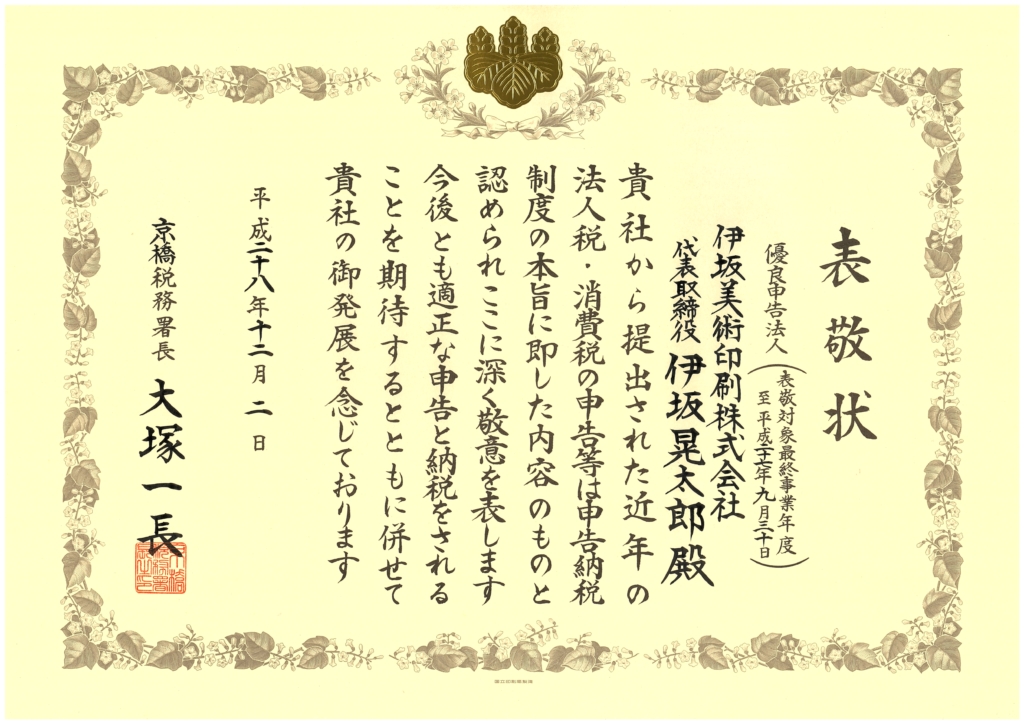 表敬状
優良申告法人
（表敬対象最終事業年度
至 平成三十二年九月三十日）
伊坂美術印刷株式会社
代表取締役 伊坂晃太郎殿
貴社から提出された近年の
法人税・消費税の申告等は申告納税
制度の本旨に即した内容のものと
認められここに深く敬意を表します
今後とも適正な申告と納税をされる
ことを期待するとともに併せて
貴社の御発展を念じております
平成二十八年十二月二日
京橋税務署長 大塚一長